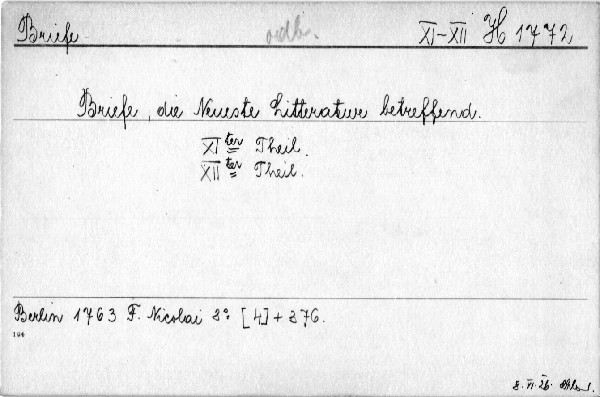 Briefe. XI-XII H 1772
Briefe, die Neueste Litteratur betreffend.
XI ter Theil.
XII ter Theil.
Berlin 1763 F. Nicolai 8° [4] + 376.
8. VI. 26.